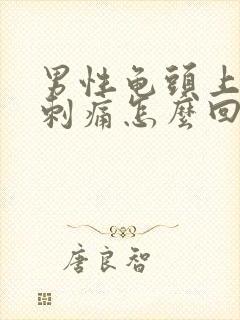 男性龟頭上
刺痛怎麼回
唐良智